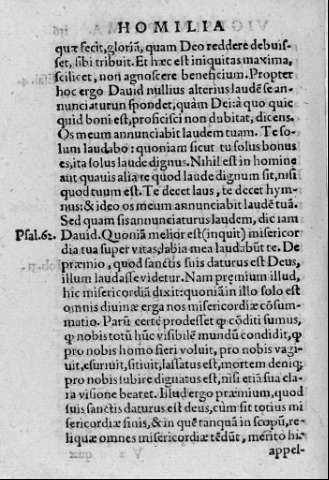 HOMILIA
quæ fecit, gloriã, quam Deo reddere debuis-
set, sibi tribuit. Et hæc est iniquitas maxima,
scilicet, non agnoscere beneficium. Propter
hoc ergo Dauid nullius alterius laudẽ se an-
nunciaturum spondet, quàm Dei: à quo quic
quid boni est, proficisci non dubitat, dicens.
Os meum annunciabit laudem tuam. Te so-
lum laudabo: quoniam sicut tu solus bonus
es, ita solus laude dignus. Nihil est in homine
aut quauis alia re quod laude dignum sit, nisi
quod tuum est. Te decet laus, te decet hym-
nus: & ideo os meum annunciabit laudẽ tuã.
Sed quam sis annunciaturus laudem, dic iam
Psal.62. Dauid. Quoniã melior est (inquit) misericor
dia tua super vitas, labia mea laudabũt te. De
præmio, quod sanctis suis daturus est Deus,
illum laudasse videtur. Nam pręmium illud,
hic misericordiã dixit: quoniã in illo solo est
omnis diuinæ erga nos misericordiæ cõsum-
matio. Parũ certè prodesset ꝙ cõditi sumus,
ꝙ nobis totũ hũc visibilẽ mundũ condidit, ꝙ
pro nobis homo fieri voluit, pro nobis vagi-
uit, esuriuit, sitiuit, lassatus est, mortem deniq;
pro nobis subire dignatus est, nisi etiã sua cla-
ra visione bearet. Illud ergo præmium, quod
suis sanctis daturus est deus, cùm sit totius mi
sericordiæ finis, & in quẽ tanquã in scopũ, re-
liquæ omnes misericordiæ tẽdũt, meritò hic
appel-